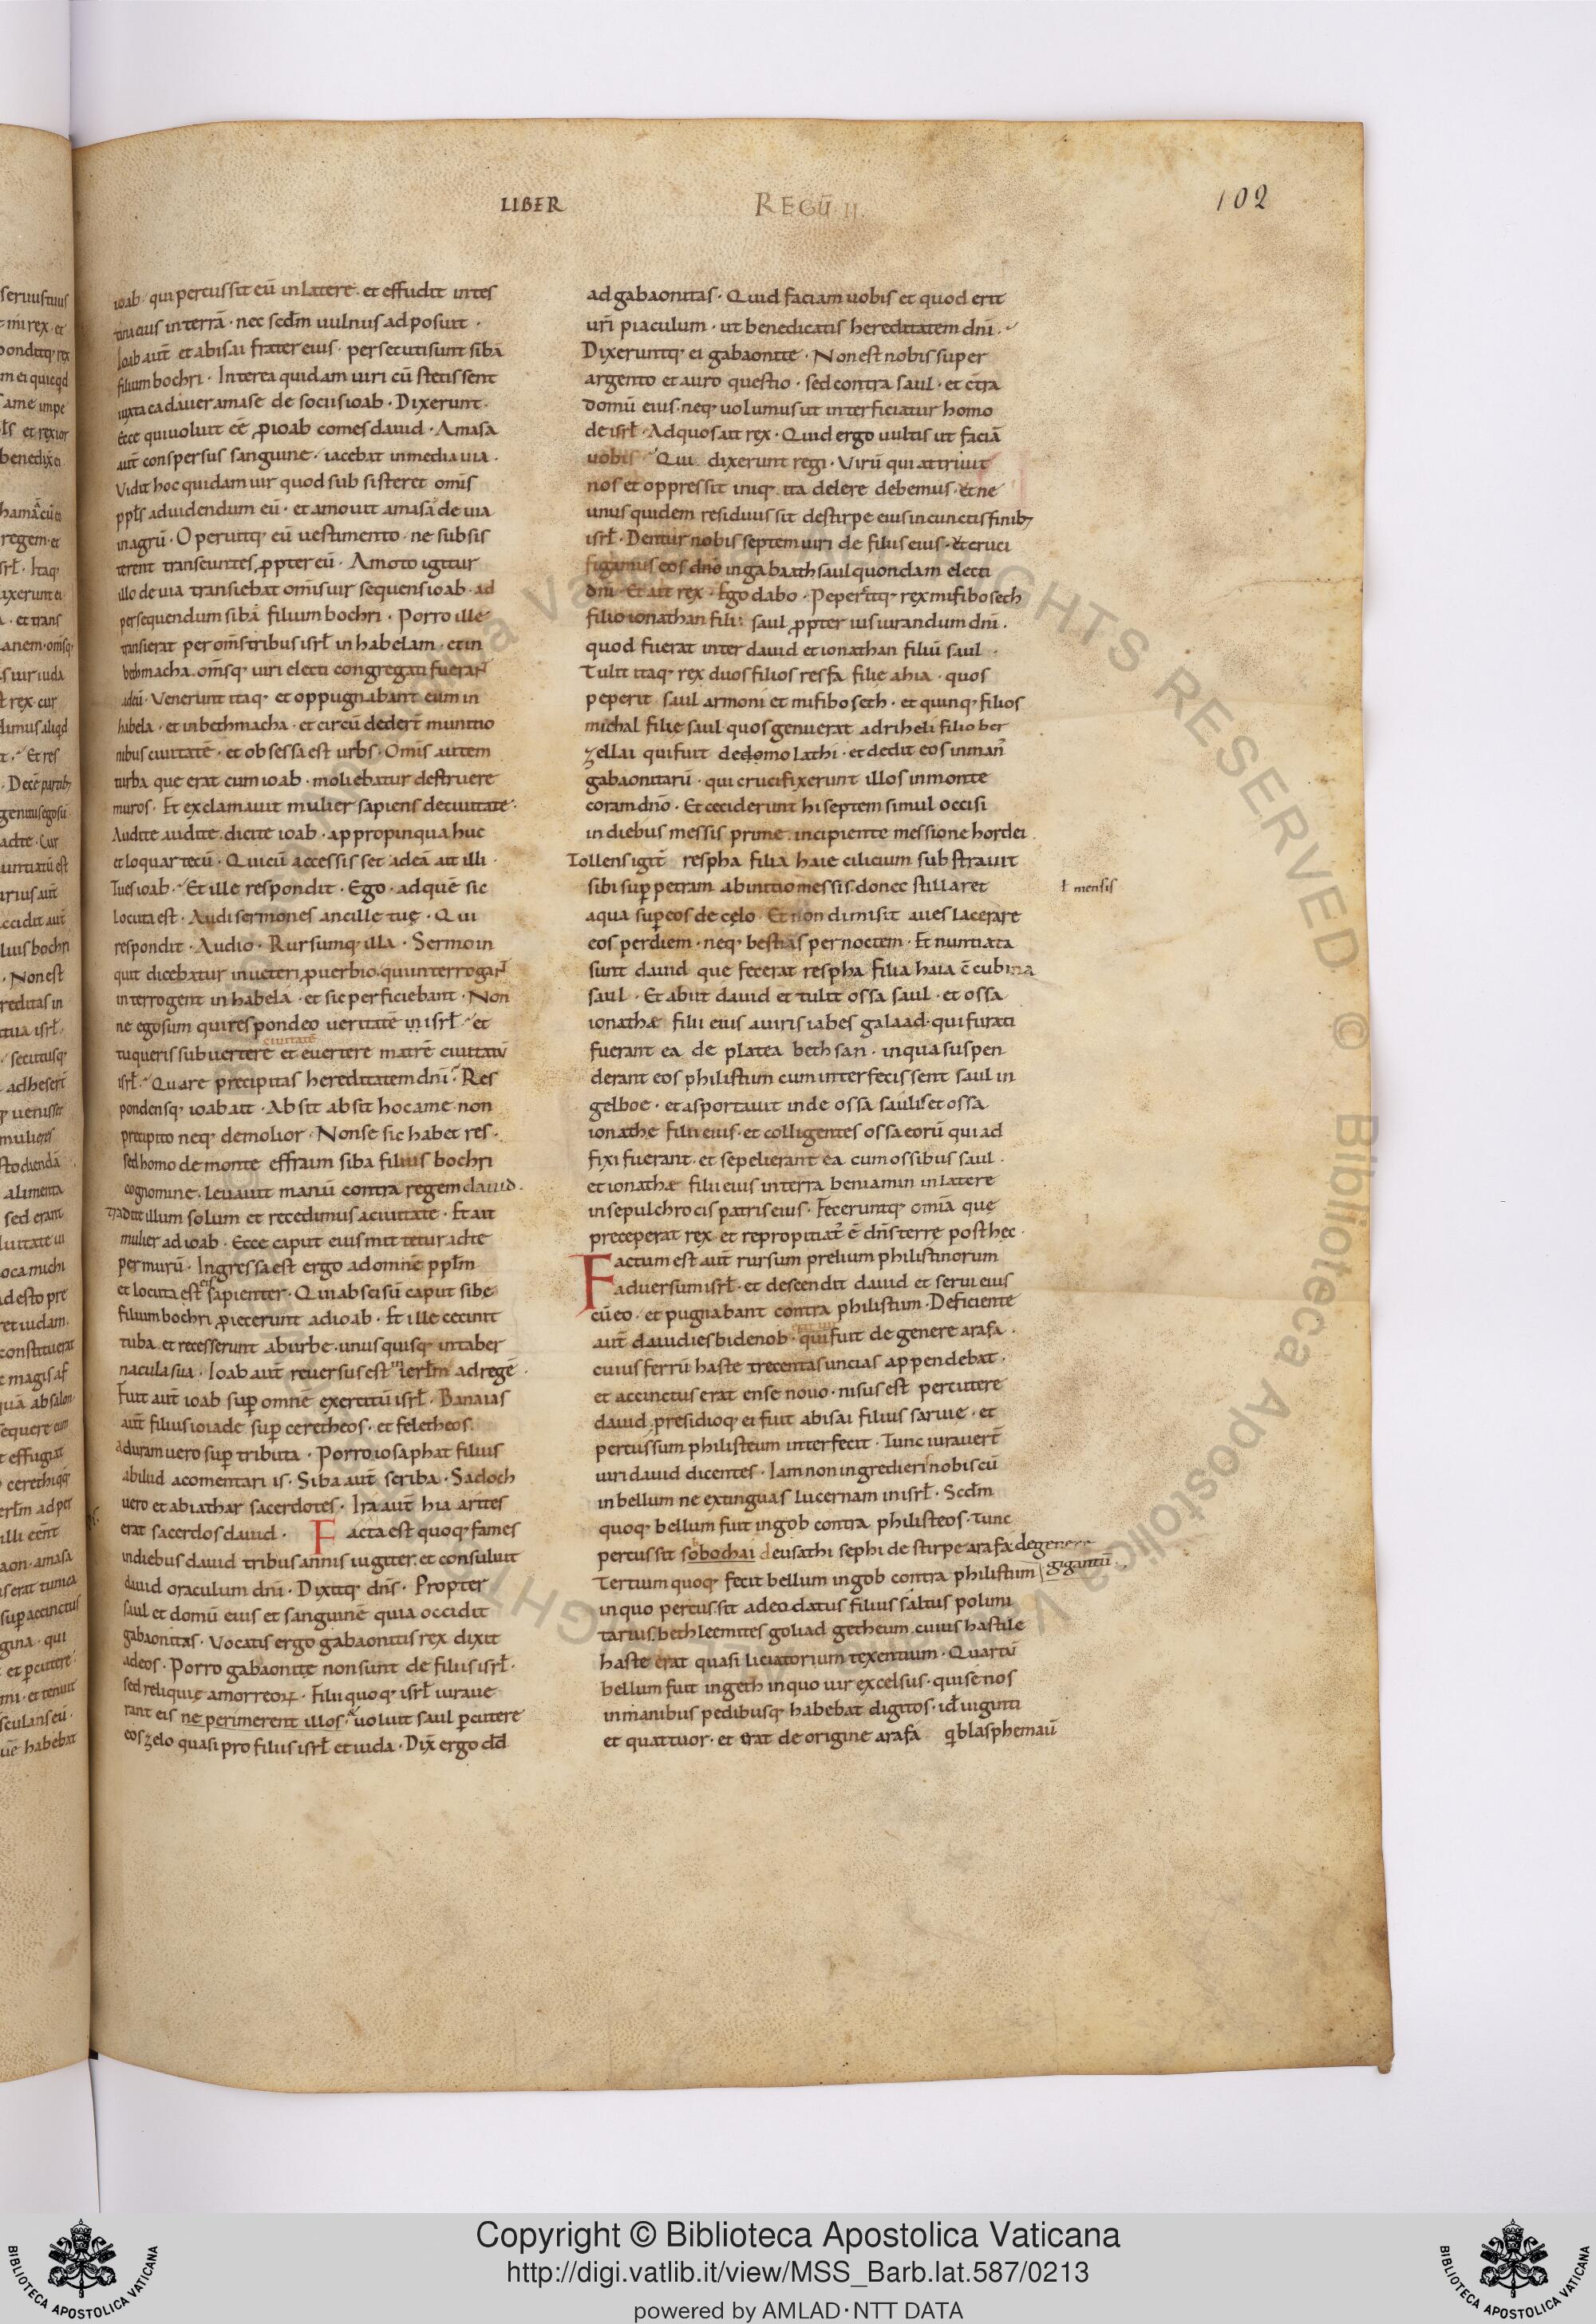 LIBER REGŪ II.
102
ioab · qui percussit eū in latere · et effudit intes
tina eius in terrā · nec scd̄m uulnus adposuit ·
Ioab aut̄ et abisai frater eius · persecuti sunt sibā
filium bochri · Interea quidam uiri cū stetissent
iuxta cadauer amase de sociis ioab · Dixerunt ·
Ecce qui uoluit eē ꝓ ioab comes dauid · Amasa
aut̄ conspersus sanguine · iacebat in media uia ·
Vidit hoc quidam uir quod subsisteret omīs
ppl̄s ad uidendum eū · et amouit amasā de uia
in agrū · Operuitq; eū uestimento · ne subsis
terent transeuntes ꝓpter eū · Amoto igitur
illo de uia transiebat omīs uir sequens ioab · ad
persequendum sibā filium bochri · Porro ille
transierat per om̄s tribus isrł in habelam · et in
bethmacha · om̄sq; uiri electi congregati fuerant
ad eū · Venerunt itaq; et oppugnabant eum in
habela · et in bethmacha · et circū dedert̄ munitio
nibus ciuitatē · et obsessa est urbs · Omīs autem
turba que erat cum ioab · moliebatur destruere
muros · Et exclamauit mulier sapiens de ciuitate ·
Audite audite dicite ioab · appropinqua huc
et loquar tecū · Qui cū accessisset ad eā ait illi ·
Tu es ioab · Et ille respondit · Ego · ad quē sic
locuta est · Audi sermones ancille tuę · Qui
respondit · Audio · Rursumq; illa · Sermo in
quit dicebatur in ueteri ꝓuerbio · qui interrogant
interrogent in habela · et sic perficiebant · Non
ne ego sum qui respondeo ueritatē in isrł · et
ciuitatē
tu queris subuertere et euertere matrē ciuitatū
isrł · Quare precipitas hereditatem dnī · Res
pondensq; ioab ait · Absit absit hoc a me non
precipito neq; demolior · Non se sic habet res ·
sed homo de monte effraim siba filius bochri
cognomine · leuauit manū contra regem dauid ·
Tradite illum solum et recedimus a ciuitate · Et ait
mulier ad ioab · Ecce caput eius mittetur ad te
per murū · Ingressa est ergo ad omnē pplm̄
et locuta est eis sapienter · Qui abscisū caput sibe
filium bochri ꝓiecerunt ad ioab · Et ille cecinit
tuba · et recesserunt ab urbe · unusquisq; in taber
nacula sua · Ioab aut̄ reuersus est in ierlm̄ ad regē ·
Fuit aut̄ ioab sup omnē exercitū isrł · Banaias
aut̄ filius ioiade sup ceretheos · et feletheos
aduram uero sup tributa · Porro iosaphat filius
abilud a comentariis · Siba aut̄ scriba · Sadoch
uero et abiathar sacerdotes · Ira aut̄ hiaarites
erat sacerdos dauid · Facta est quoq; fames
in diebus dauid tribus annis iugiter · et consuluit
dauid oraculum dnī · Dixitq; dn̄s · Propter
saul et domū eius et sanguinē quia occidit
gabaonitas · Vocatis ergo gabaonitis rex dixit
ad eos · Porro gabaonite non sunt de filiis isrł ·
sed reliquię amorreoꝝ · Filii quoq; isrł iuraue
rant eis ne perimerent illos · uoluit saul pcutere
eos zelo quasi pro filiis isrł et iuda · Dix̄ ergo dd̄
ad gabaonitas · Quid faciam uobis et quod erit
urī piaculum · ut benedicatis hereditatem dnī ·
Dixeruntq; ei gabaonite · Non est nobis super
argento et auro questio · sed contra saul · et ctra
domū eius · neq; uolumus ut interficiatur homo
de isrł · Ad quos ait rex · Quid ergo uultis ut faciā
uobis · Qui dixerunt regi · Virū qui attriuit
nos et oppressit iniq; ita delere debemus · et ne
unus quidem residuus sit de stirpe eius in cunctis finib;
isrł · Dentur nobis septem uiri de filiis eius · et cruci
figamus eos dnō in gabaath saul quondam electi
dnī · Et ait rex · Ego dabo · Pepercitq; rex mifiboseth
filio ionathan filii saul ꝓpter iusiurandum dnī ·
quod fuerat inter dauid et ionathan filiū saul ·
Tulit itaq; rex duos filios resfa filie ahia · quos
peperit saul armoni et mifiboseth · et quinq; filios
michal filie saul quos genuerat adriheli filio ber
zellai qui fuit de domo lathi · et dedit eos in man̄
gabaonitarū · qui crucifixerunt illos in monte
coram dnō · Et ceciderunt hi septem simul occisi
in diebus messis prime · incipiente messione hordei
Tollens igit̄ respha filia haie cilicium substrauit
sibi sup petram ab initio messis donec stillaret
ł mensis
aqua sup eos de celo · Et non dimisit aues lacerare
eos per diem · neq; bestias per noctem · Et nuntiata
sunt dauid que fecerat respha filia haia c̄cubina
saul · Et abiit dauid et tulit ossa saul · et ossa
ionathæ filii eius a uiris iabes galaad · qui furati
fuerant ea de platea bethsan · in qua suspen
derant eos philistiim cum interfecissent saul in
gelboe · et asportauit inde ossa saulis et ossa
ionathe filii eius · et colligentes ossa eorū qui ad
fixi fuerant · et sepelierant ea cum ossibus saul ·
et ionathæ filii eius in terra beniamin in latere
in sepulchro cis patris eius · Feceruntq; omīa que
preceperat rex · et repropitiat̄ ē dn̄s terre post hec ·
Factum est aut̄ rursum prelium philistinorum
aduersum isrł · et descendit dauid et serui eius
cū eo · et pugnabant contra philistiim · Deficiente
aut̄ dauid iesbidenob · qui fuit de genere arafa ·
cuius ferrū haste trecentas uncias appendebat ·
et accinctus erat ense nouo · nisus est percutere
dauid · presidioq; ei fuit abisai filius saruie · et
percussum philisteum interfecit · Tunc iurauert̄
uiri dauid dicentes · Iam non ingredieri nobiscū
in bellum ne extinguas lucernam in isrł · Scd̄m
quoq; bellum fuit in gob contra philisteos · Tunc
percussit sobochai deusathi sephi de stirpe arafa de genere
gigantū ·
Tertium quoq; fecit bellum in gob contra philistiim
in quo percussit adeodatus filius saltus polimi
tarius bethleemites goliad getheum cuius hastile
haste erat quasi liciatorium texentium · Quartū
bellum fuit in geth in quo uir excelsus · qui senos
in manibus pedibusq; habebat digitos · id̄ uiginti
et quattuor · et erat de origine arafa q blasphemau̅
Copyright © Biblioteca Apostolica Vaticana
http://digi.vatlib.it/view/MSS_Barb.lat.587/0213
powered by AMLAD·NTT DATA